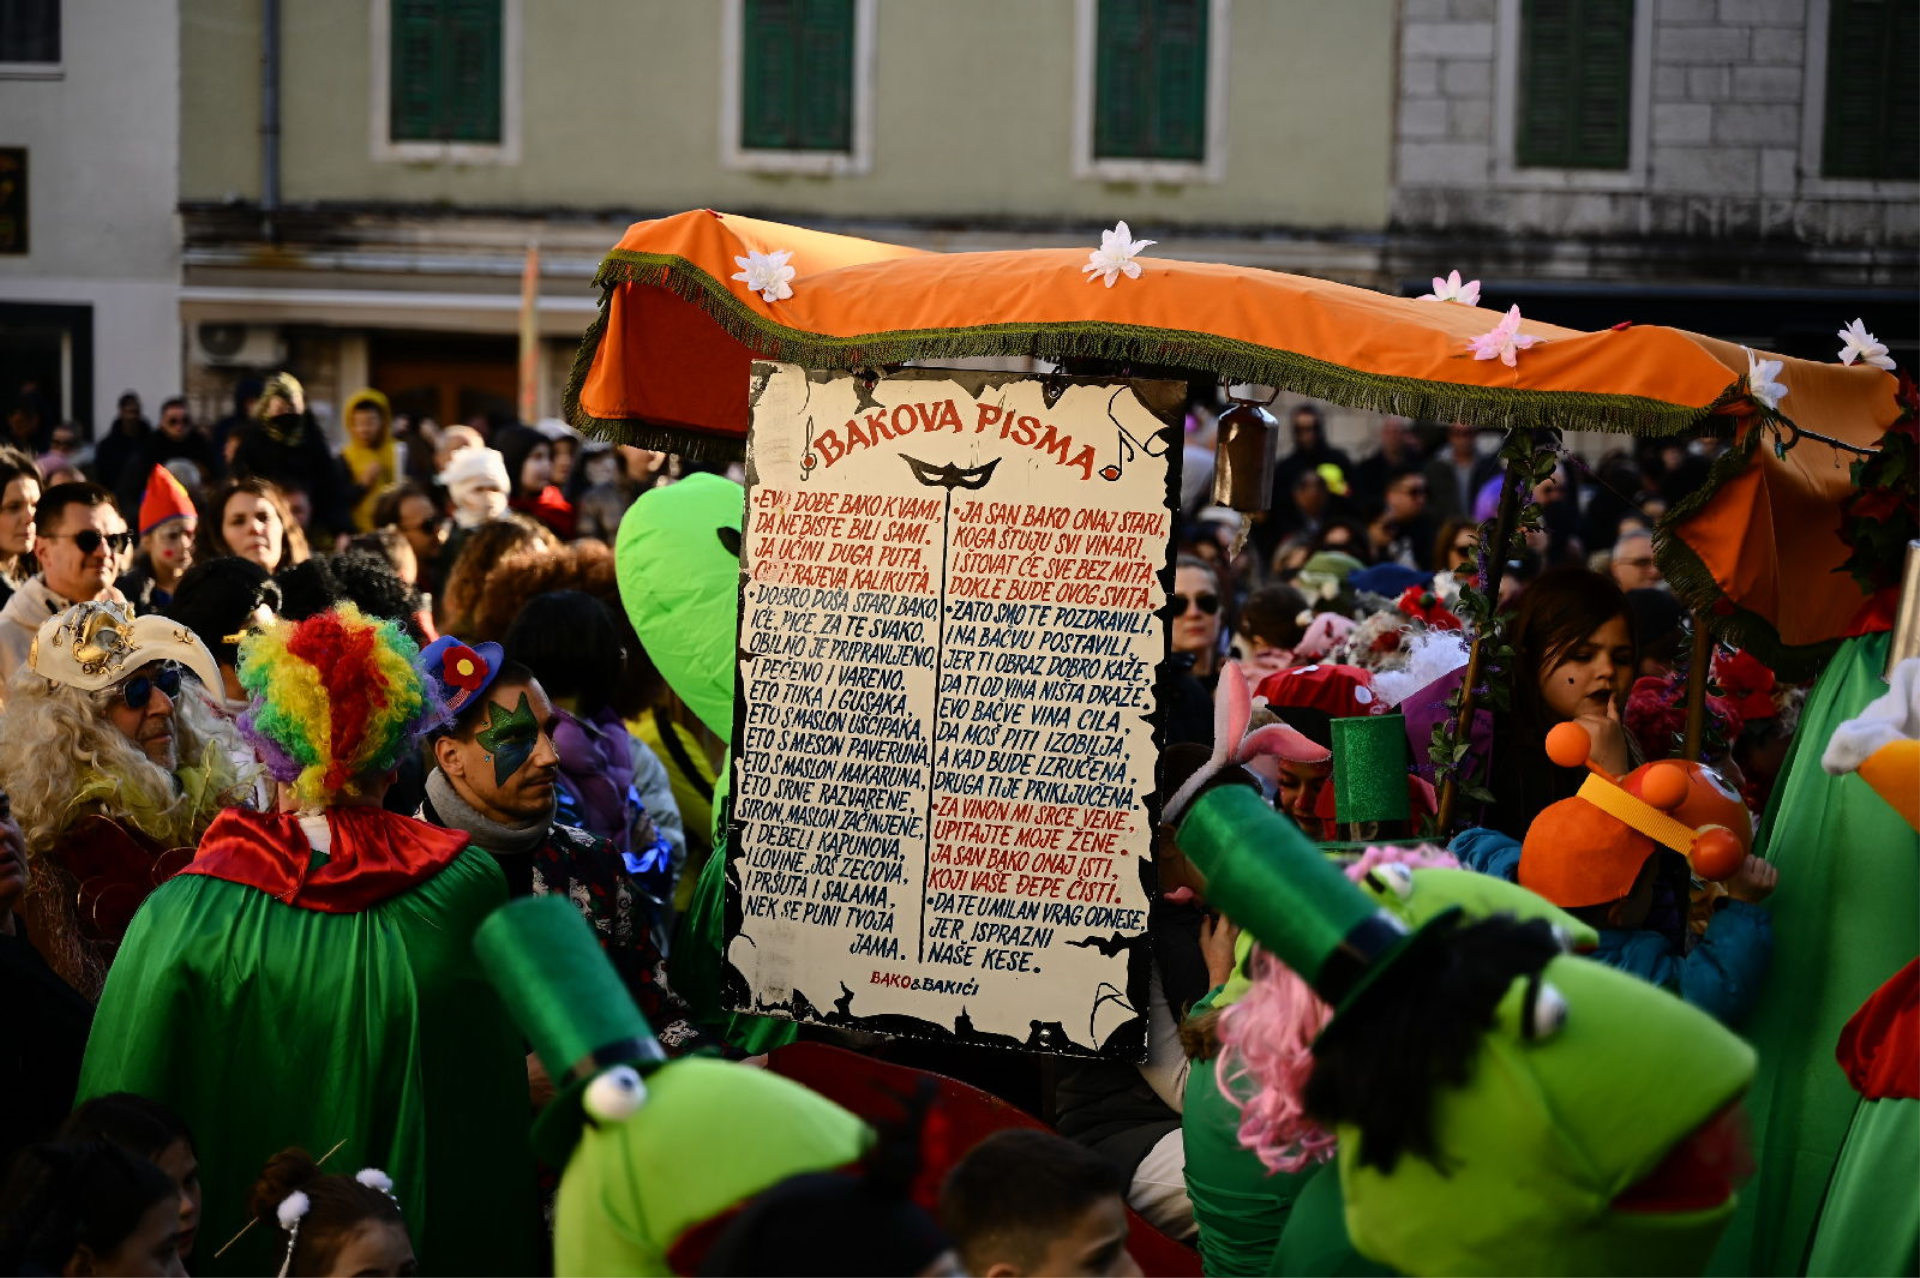 BAKOVA PISMA
•EVO DOĐE BAKO K VAMI,
DA NEBISTE BILI SAMI.
JA UČINI DUGA PUTA,
KRAJEVA KALIKUTA.
•DOBRO DOŠA STARI BAKO,
IĆE, PIĆE, ZA TE SVAKO.
OBILNO JE PRIPRAVLJENO,
I PEČENO I VARENO.
ETO TUKA I GUSAKA,
ETO S MASLON USCIPAKA,
ETO S MESON PAVERUNA,
ETO S MASLON MAKARUNA,
ETO SRNE RAZVARENE,
SIRON, MASLON ZAČINJENE,
I DEBELI KAPUNOVA,
I LOVINE, JOŠ ZECOVA,
I PRŠUTA I SALAMA,
NEK SE PUNI TVOJA
JAMA.
•JA SAN BAKO ONAJ STARI,
KOGA ŠTUJU SVI VINARI.
I ŠTOVAT ĆE SVE BEZ MITA,
DOKLE BUDE OVOG SVITA.
•ZATO SMO TE POZDRAVILI,
I NA BAČVU POSTAVILI,
JER TI OBRAZ DOBRO KAŽE,
DA TI OD VINA NIŠTA DRAŽE.
EVO BAČVE VINA CILA,
DA MOŠ PITI IZOBILJA,
A KAD BUDE IZRUČENA,
DRUGA TI JE PRIKLJUČENA.
•ZA VINON MI SRCE VENE,
UPITAJTE MOJE ŽENE.
JA SAN BAKO ONAJ ISTI,
KOJI VAŠE ĐEPE ČISTI.
•DA TE U MILAN VRAG ODNESE,
JER ISPRAZNI
NAŠE KESE.
BAKO & BAKIĆI